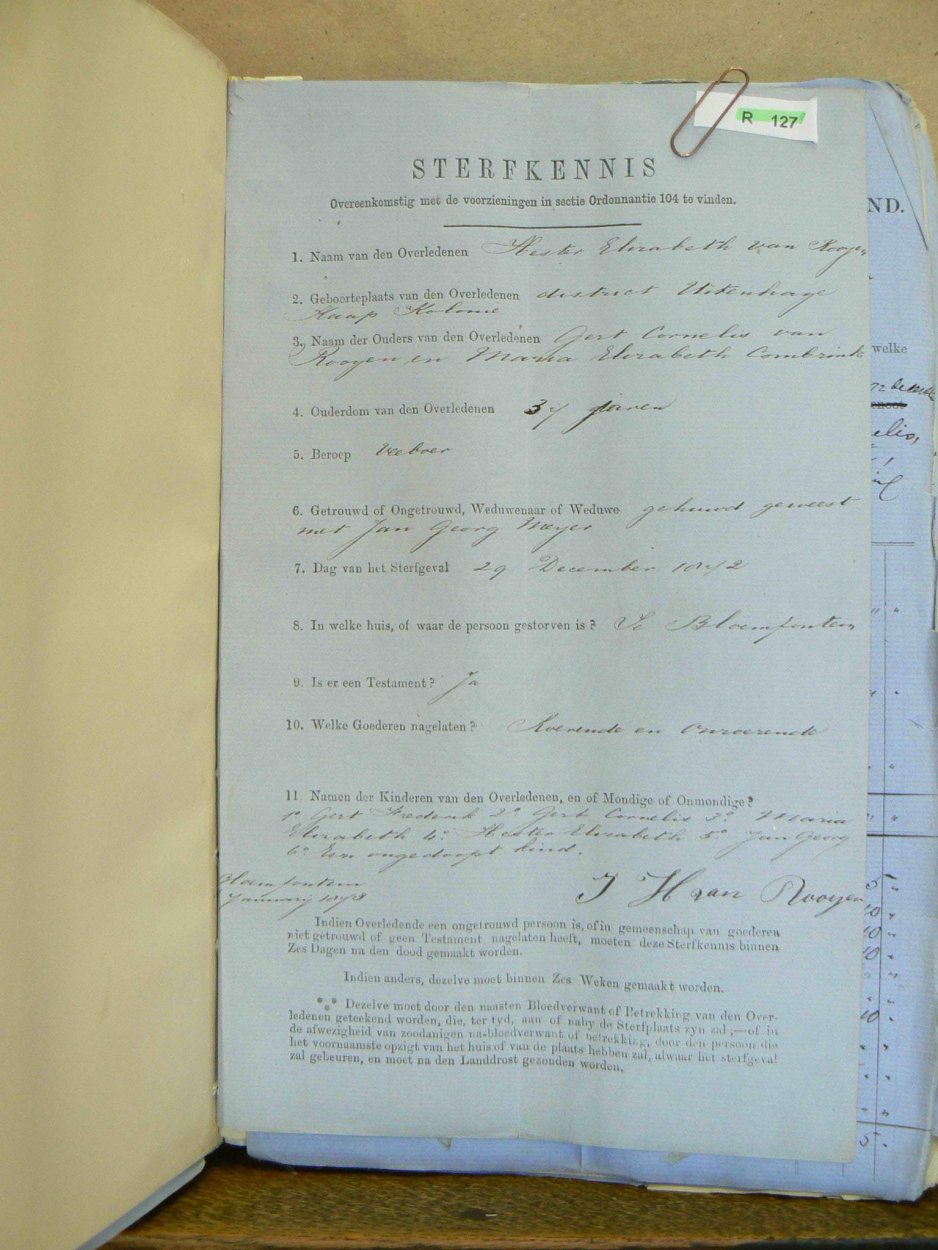 R 127
STERFKENNIS
Overeenkomstig met de voorzieningen in sectie Ordonnantie 104 te vinden.
1. Naam van den Overledenen Hester Elizabeth van Rooyen
2. Geboorteplaats van den Overledenen district Uitenhage
Kaap Kolonie
3. Naam der Ouders van den Overledenen Gert Cornelis van
Rooyen en Maria Elizabeth Combrink
4. Ouderdom van den Overledenen 37 jaren
5. Beroep Veeboer
6. Getrouwd of Ongetrouwd, Weduwenaar of Weduwe gehuwd geweest
met Jan Georg Meyer
7. Dag van het Sterfgeval 29 December 1872
8. In welke huis, of waar de persoon gestorven is? Te Bloemfontein
9. Is er een Testament? Ja
10. Welke Goederen nagelaten? Roerende en Onroerende
11. Namen der Kinderen van den Overledenen, en of Mondige of Onmondige?
1° Gert Frederik 2° Gert Cornelis 3° Maria
Elizabeth 4° Hester Elizabeth 5° Jan Georg
6° Een ongedoopt kind.
Bloemfontein
January 1873
J H van Rooyen
Indien Overledende een ongetrouwd persoon is, of in gemeenschap van goederen
niet getrouwd of geen Testament nagelaten heeft, moeten deze Sterfkennis binnen
Zes Dagen na den dood gemaakt worden.
Indien anders, dezelve moet binnen Zes Weken gemaakt worden.
*** Dezelve moet door den naasten Bloedverwant of Betrekking van den Over-
ledenen geteekend worden, die, ter tyd, aan of naby de Sterfplaats zyn zal;—of in
de afwezigheid van zoodanigen na-bloedverwant of betrekking, door den persoon die
het voornaamste opzigt van het huis of van de plaats hebben zal, alwaar het sterfgeval
zal gebeuren, en moet na den Landdrost gezonden worden.
ND.
welke